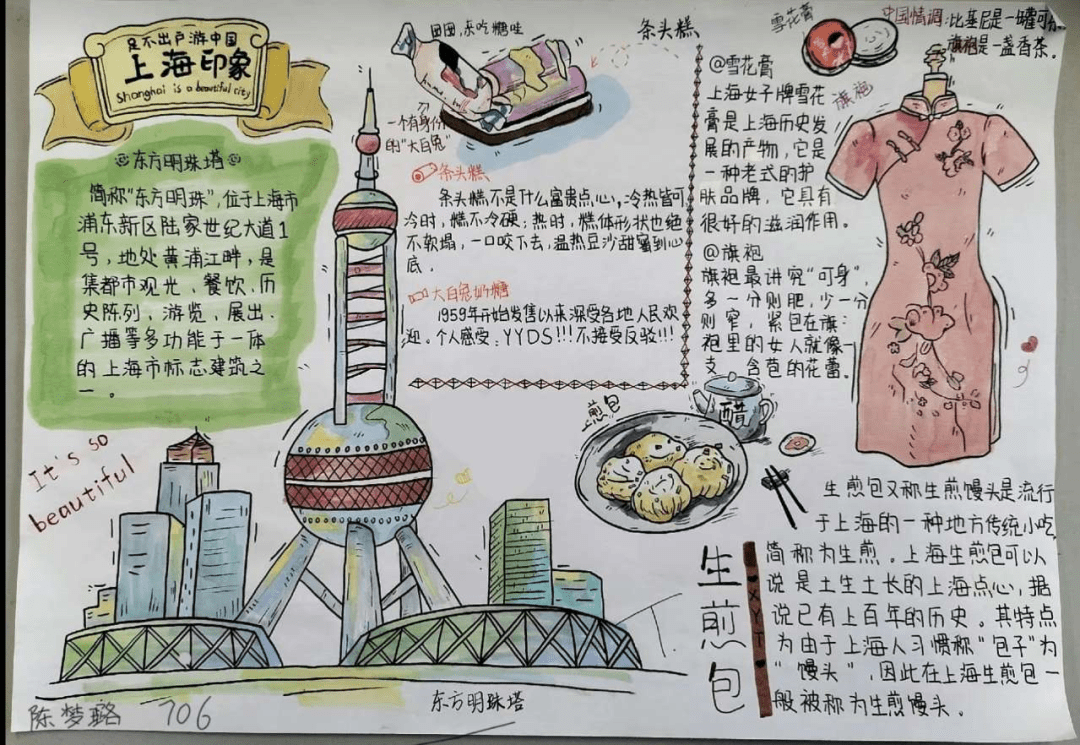 足不出户游中国
上海印象
Shanghai is a beautiful city
东方明珠塔
简称"东方明珠",位于上海市
浦东新区陆家世纪大道1
号,地处黄浦江畔,是
集都市观光、餐饮、历
史陈列、游览、展出、
广播等多功能于一体
的上海市标志建筑之
一。
It's so
beautiful
囡囡,来吃糖哇
一个有身份
的"大白兔"
条头糕
条头糕
条头糕不是什么富贵点心,冷热皆可
冷时,糕不冷硬;热时,糕体形状也绝
不软塌,一口咬下去,温热豆沙甜蜜到心
底.
大白兔奶糖
1959年开始发售以来深受各地人民欢
迎。个人感受:YYDS!!!不接受反驳!!!
雪花膏
@雪花膏
上海女子牌雪花
膏是上海历史发
展的产物,它是
一种老式的护
肤品牌,它具有
很好的滋润作用。
@旗袍
旗袍最讲究"可身",
多一分则肥,少一分
则窄,紧包在旗
袍里的女人就像一
支 含苞的花蕾。
旗袍
中国情调:比基尼是一罐可
旗袍是一盏香茶.
煎包
醋
生煎包
XYT
生煎包又称生煎馒头是流行
于上海的一种地方传统小吃
简称为生煎。上海生煎包可以
说是土生土长的上海点心,据
说已有上百年的历史。其特点
为由于上海人习惯称"包子"为
"馒头",因此在上海生煎包一
般被称为生煎馒头。
东方明珠塔
陈梦璐 706